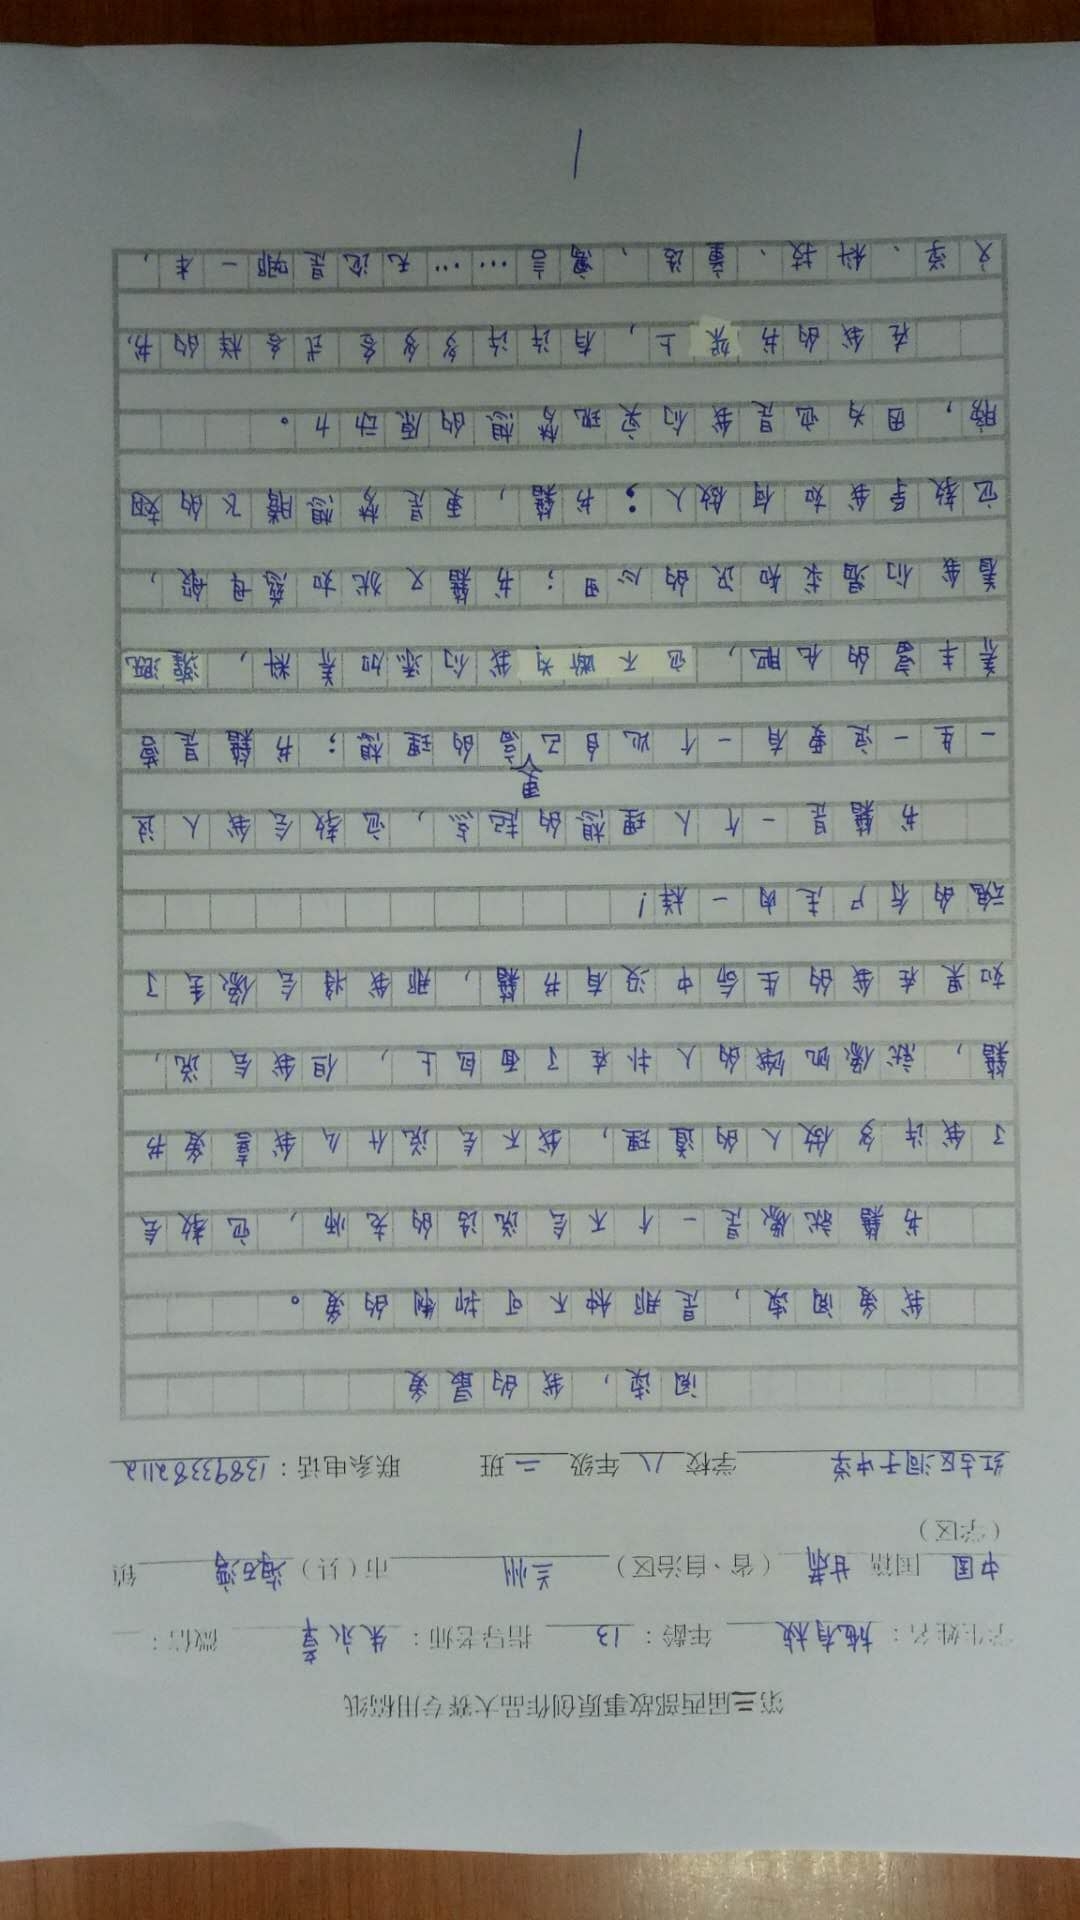 第三届西部故事原创作品大赛专用稿纸
学生姓名：施有放 年龄：13 指导老师：朱永草 微信：
中国 国籍 甘肃（省、自治区） 兰州 市（县） 海石湾 镇
（学区）
红古区洞子中学 学校 八 年级 二 班 联系电话：13893382112
阅读，我的最爱
我爱阅读，是那种不可抑制的爱。
书籍就像是一个不会说话的老师，它教会
了我许多做人的道理，我不会说什么我喜爱书
籍，就像饥饿的人扑在了面包上，但我会说，
如果在我的生命中没有书籍，那我将会像丢了
魂的行尸走肉一样！
书籍是一个人理想的起点，它教会我人这
一生一定要有一个比自己更高的理想；书籍是营
养丰富的化肥，它不断为我们添加养料，灌溉
着我们渴求知识的心田；书籍又犹如慈母般，
它教导我如何做人；书籍，更是梦想腾飞的翅
膀，因为它是我们实现梦想的原动力。
在我的书架上，有许许多多各式各样的书，
文学、科技、童话、寓言……无论是哪一本，
1